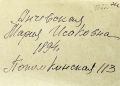 Дичевская
Мария Исаковна
1894
Потемкинская 113